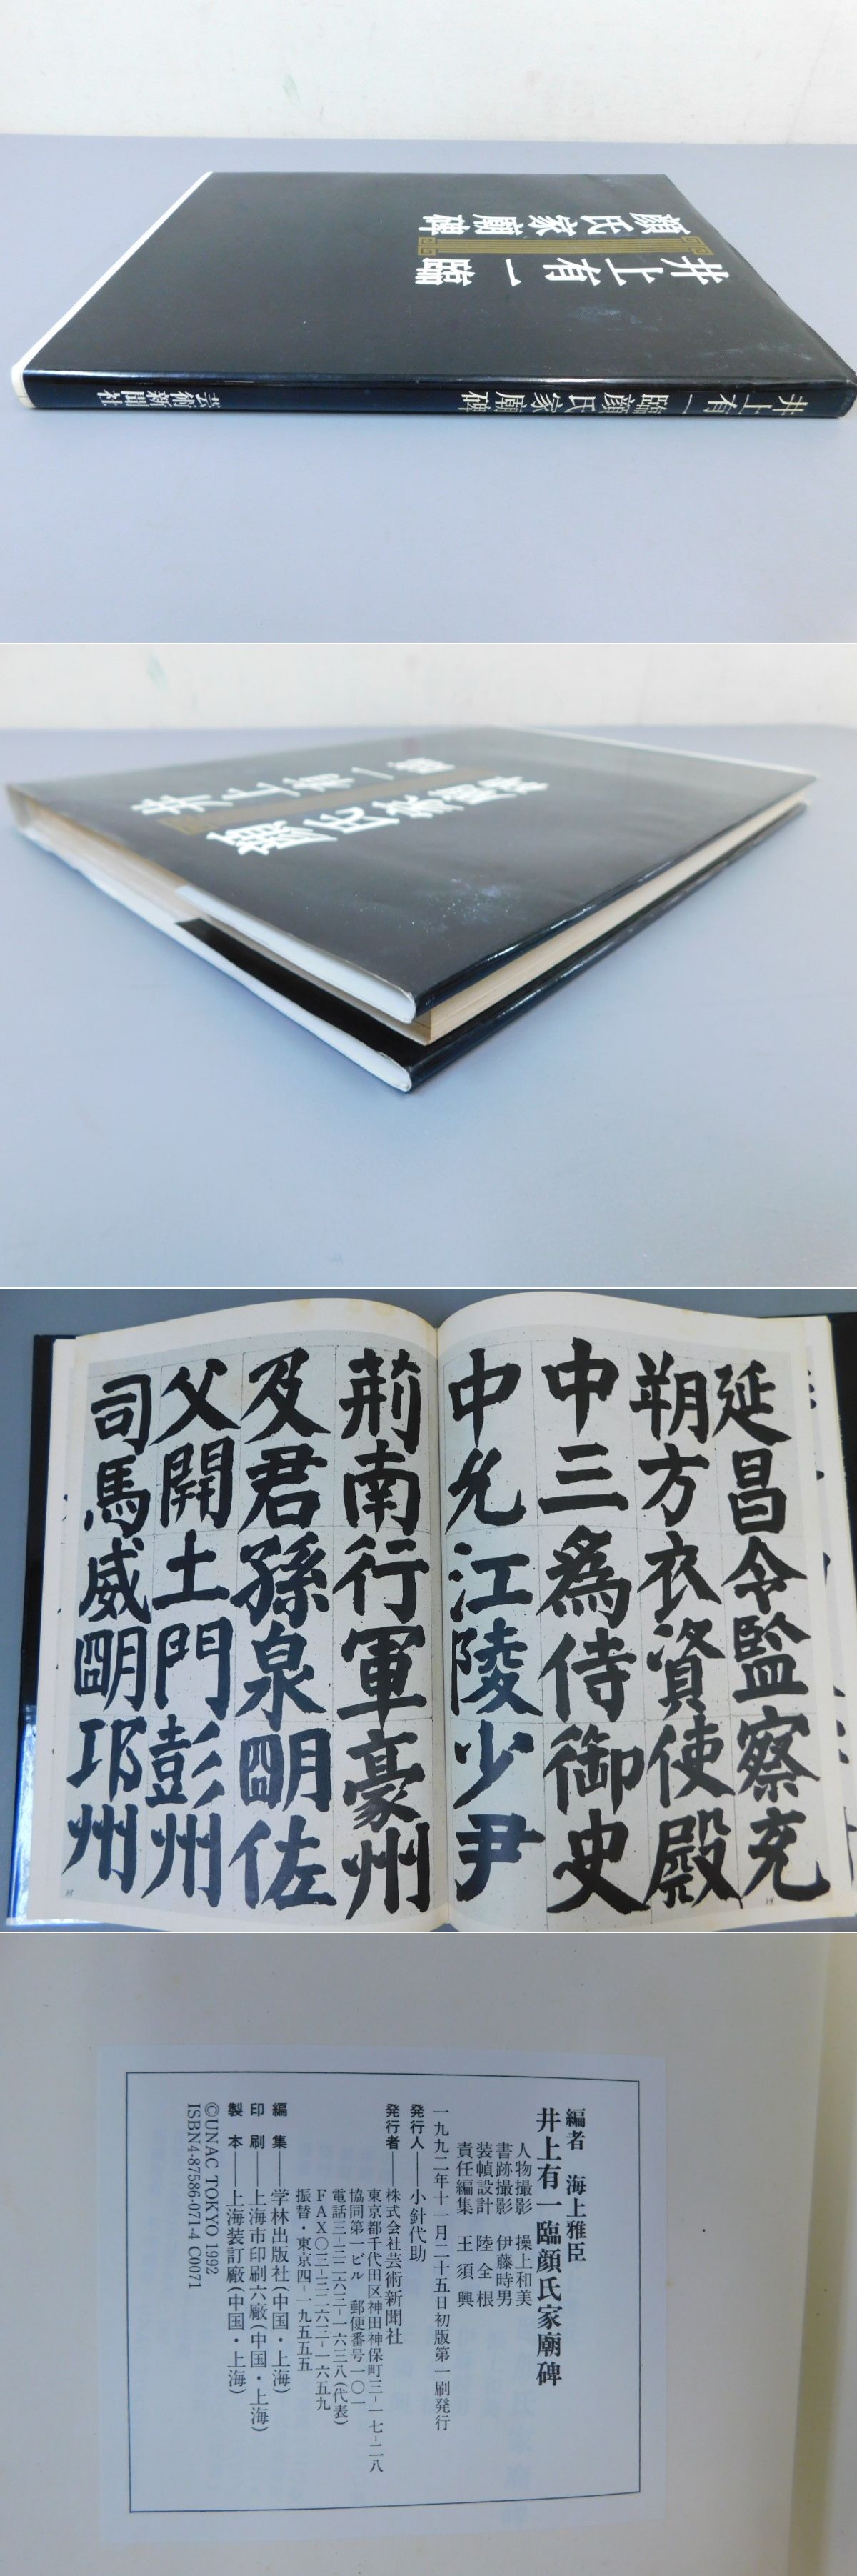 井上有一臨
顔氏家廟碑
井上有一臨顔氏家廟碑
芸術新聞社
井上有一臨
顔氏家廟碑
延昌令監察充
朔方衣資使殿
中三為侍御史
中允江陵少尹
荊南行軍豪州
及君孫泉明佐
父開土門彭州
司馬威明邛州
編者 海上雅臣
井上有一臨顔氏家廟碑
人物撮影 操上和美
書跡撮影 伊藤時男
装幀設計 陸全根
責任編集 王須興
一九九二年十一月二十五日初版第一刷発行
発行人──小針代助
発行者──株式会社芸術新聞社
東京都千代田区神田神保町三-一七-二八
協同第一ビル 郵便番号一〇一
電話三-三二六三-一六三八(代表)
FAX〇三-三二六三-一六五九
振替・東京四-一九五五五
編集──学林出版社(中国・上海)
印刷──上海市印刷六廠(中国・上海)
製本──上海装訂廠(中国・上海)
©UNAC TOKYO 1992
ISBN4-87586-071-4 C0071